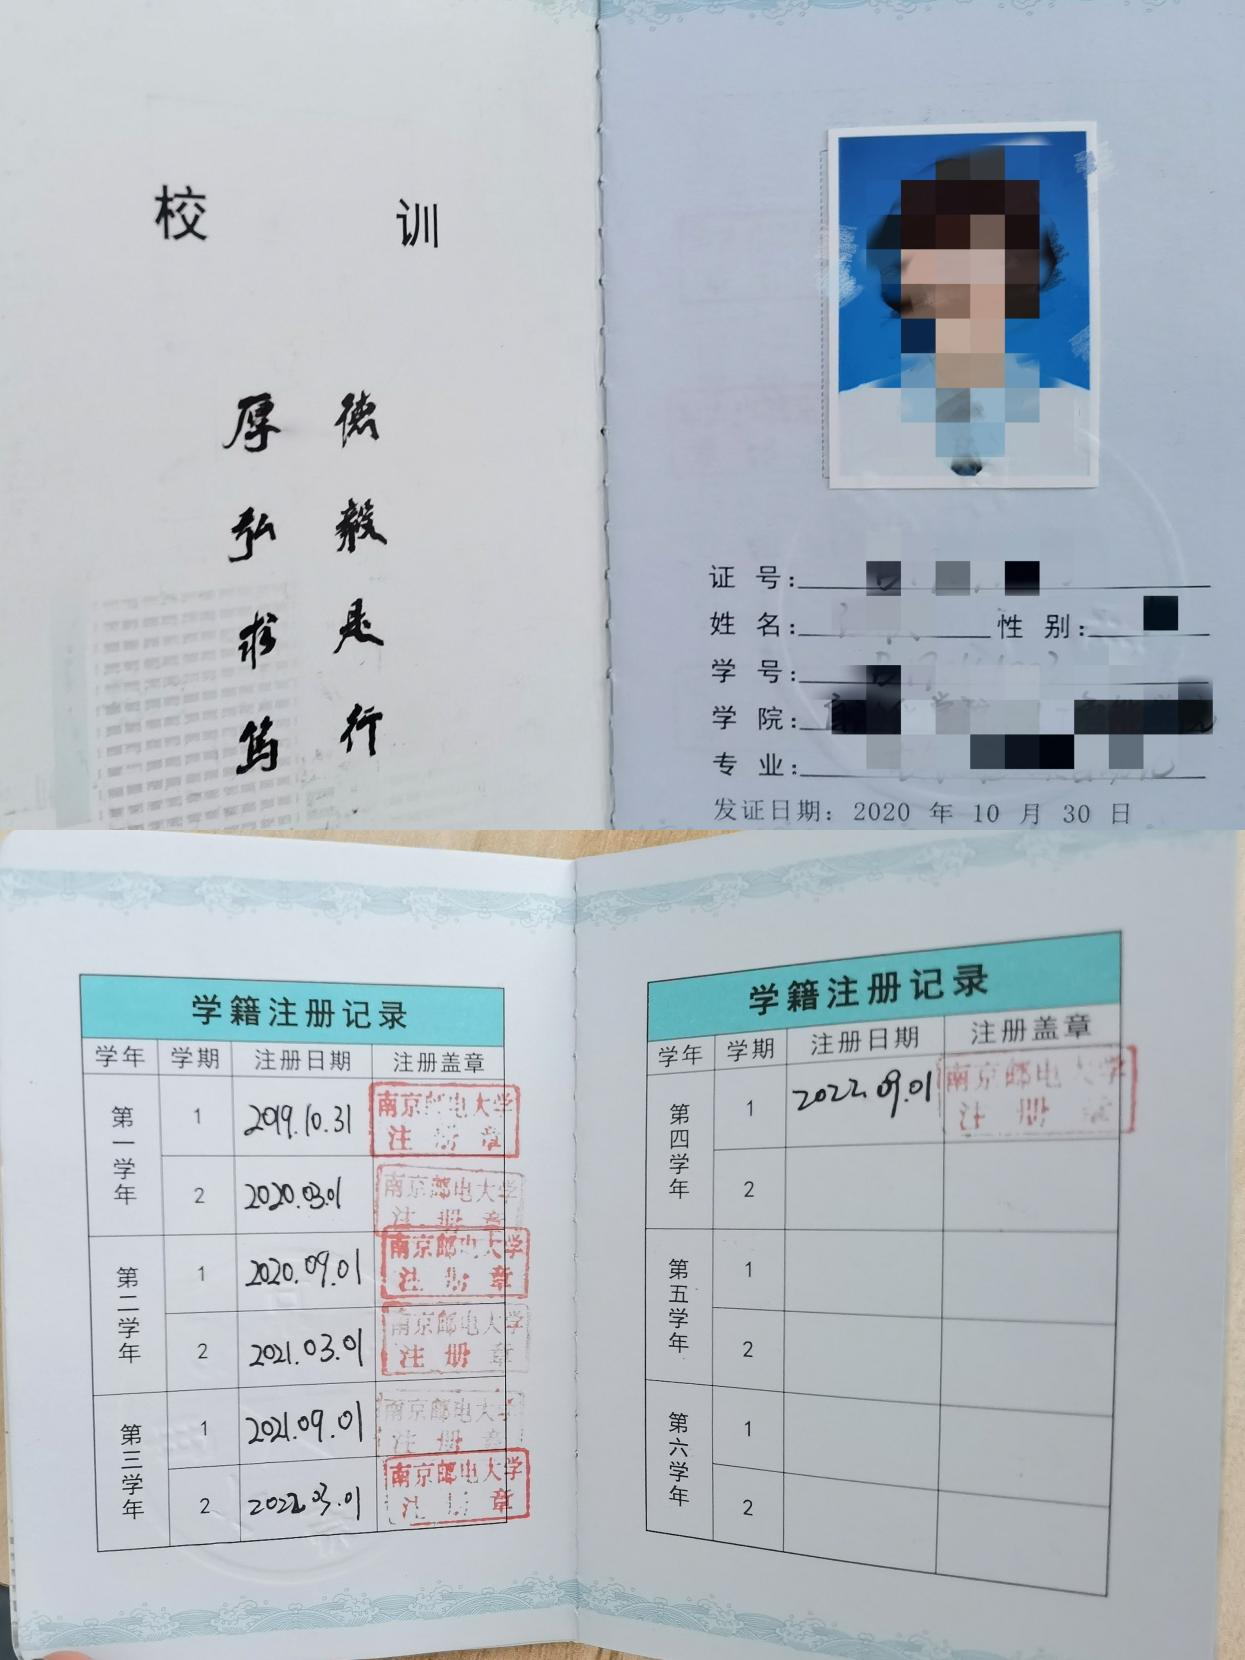 校 训
厚 德
弘 毅
求 是
笃 行
证 号:
姓 名: 性 别:
学 号:
学 院:
专 业:
发证日期: 2020 年 10 月 30 日
学籍注册记录
学年 学期 注册日期 注册盖章
第一学年 1 2019.10.31 南京邮电大学
注 册 章
2 2020.03.01 南京邮电大学
注 册 章
第二学年 1 2020.09.01 南京邮电大学
注 册 章
2 2021.03.01 南京邮电大学
注 册 章
第三学年 1 2021.09.01 南京邮电大学
注 册 章
2 2022.03.01 南京邮电大学
注 册 章
学籍注册记录
学年 学期 注册日期 注册盖章
第四学年 1 2022.09.01 南京邮电大学
注 册 章
2
第五学年 1
2
第六学年 1
2